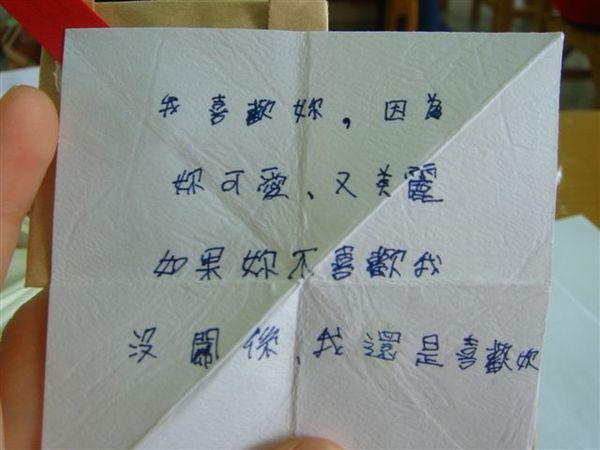 我喜歡妳，因為
妳可愛、又美麗
如果妳不喜歡我
沒關係、我還是喜歡妳